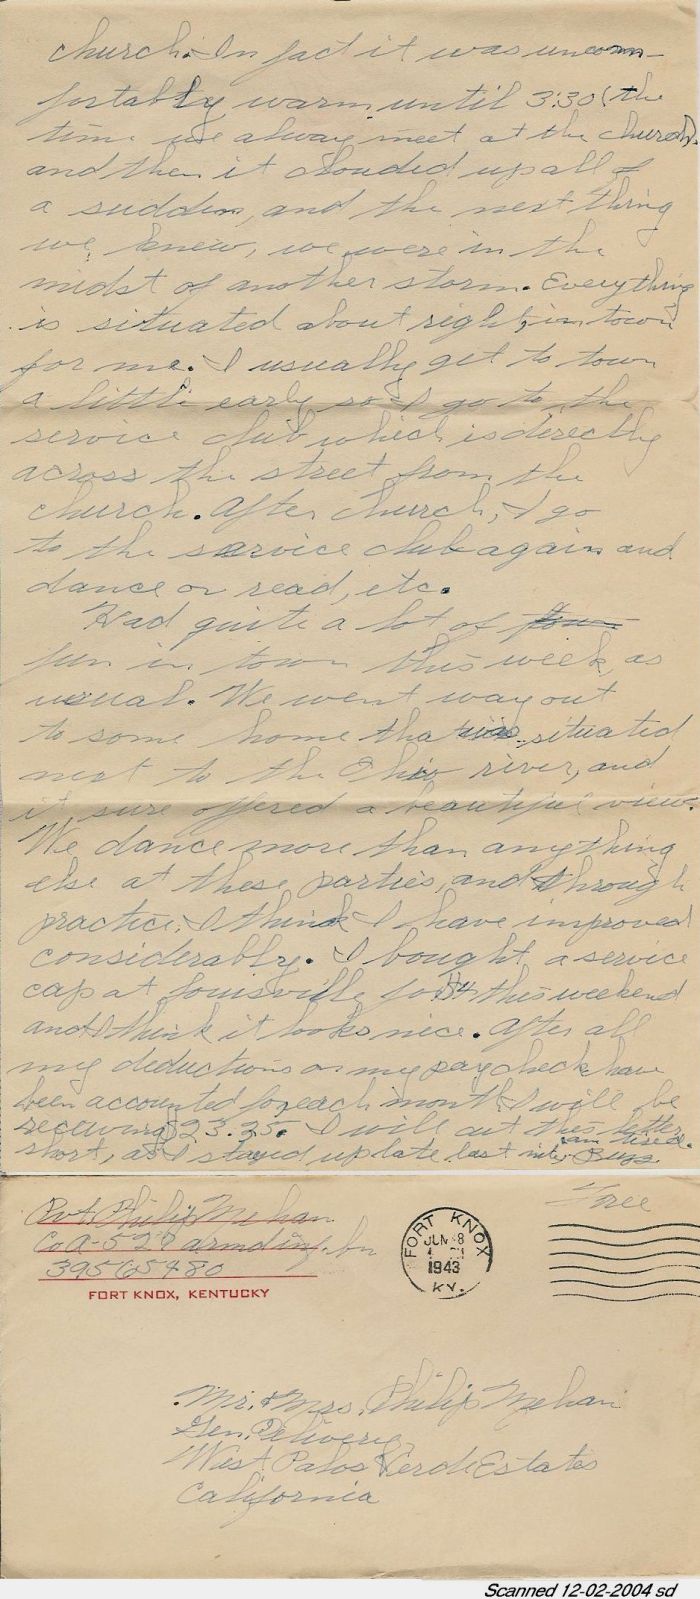 church. In fact it was uncom-
fortably warm until 3:30 (the
time we always meet at the church)
and then it clouded up all of
a sudden, and the next thing
we knew, we were in the
midst of another storm. Everything
is situated about right, in town
for me. I usually get to town
a little early so I go to the
service club which is directly
across the street from the
church. After church, I go
to the service club again and
dance or read, etc.
Had quite a lot of
fun in town this week, as
usual. We went way out
to some home that was situated
next to the Ohio river, and
it sure offered a beautiful view.
We dance more than anything
else at these parties, and through
practice, I think I have improved
considerably. I bought a service
cap at Louisville for $4 this weekend
and I think it looks nice. After all
my deductions on my paycheck have
been accounted for each month I will be
receiving $23.25. I will cut this letter
short, as I stayed up late last nite, am tired.
Buzz
Free
Pvt. Philip Mehan
Co A-527 armd inf. bn
39565480
FORT KNOX, KENTUCKY
FORT KNOX
JUN 8
1943
KY.
Mr. & Mrs. Philip Mehan
Gen. Delivery
West Palos Verde Estates
California
Scanned 12-02-2004 sd